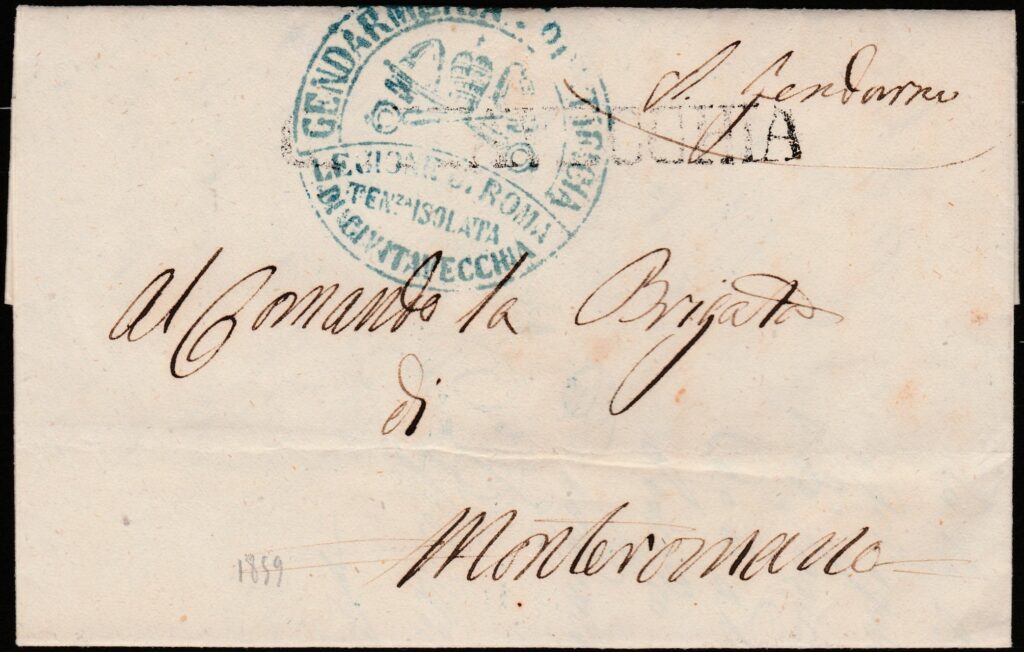 GENDARMERIA PONTIFICIA
LEGIONE DI ROMA
TENZA ISOLATA
DI CIVITAVECCHIA
CIVITAVECCHIA
S. Gendarme
Al Comando la Brigata
di
Monteromano
1859